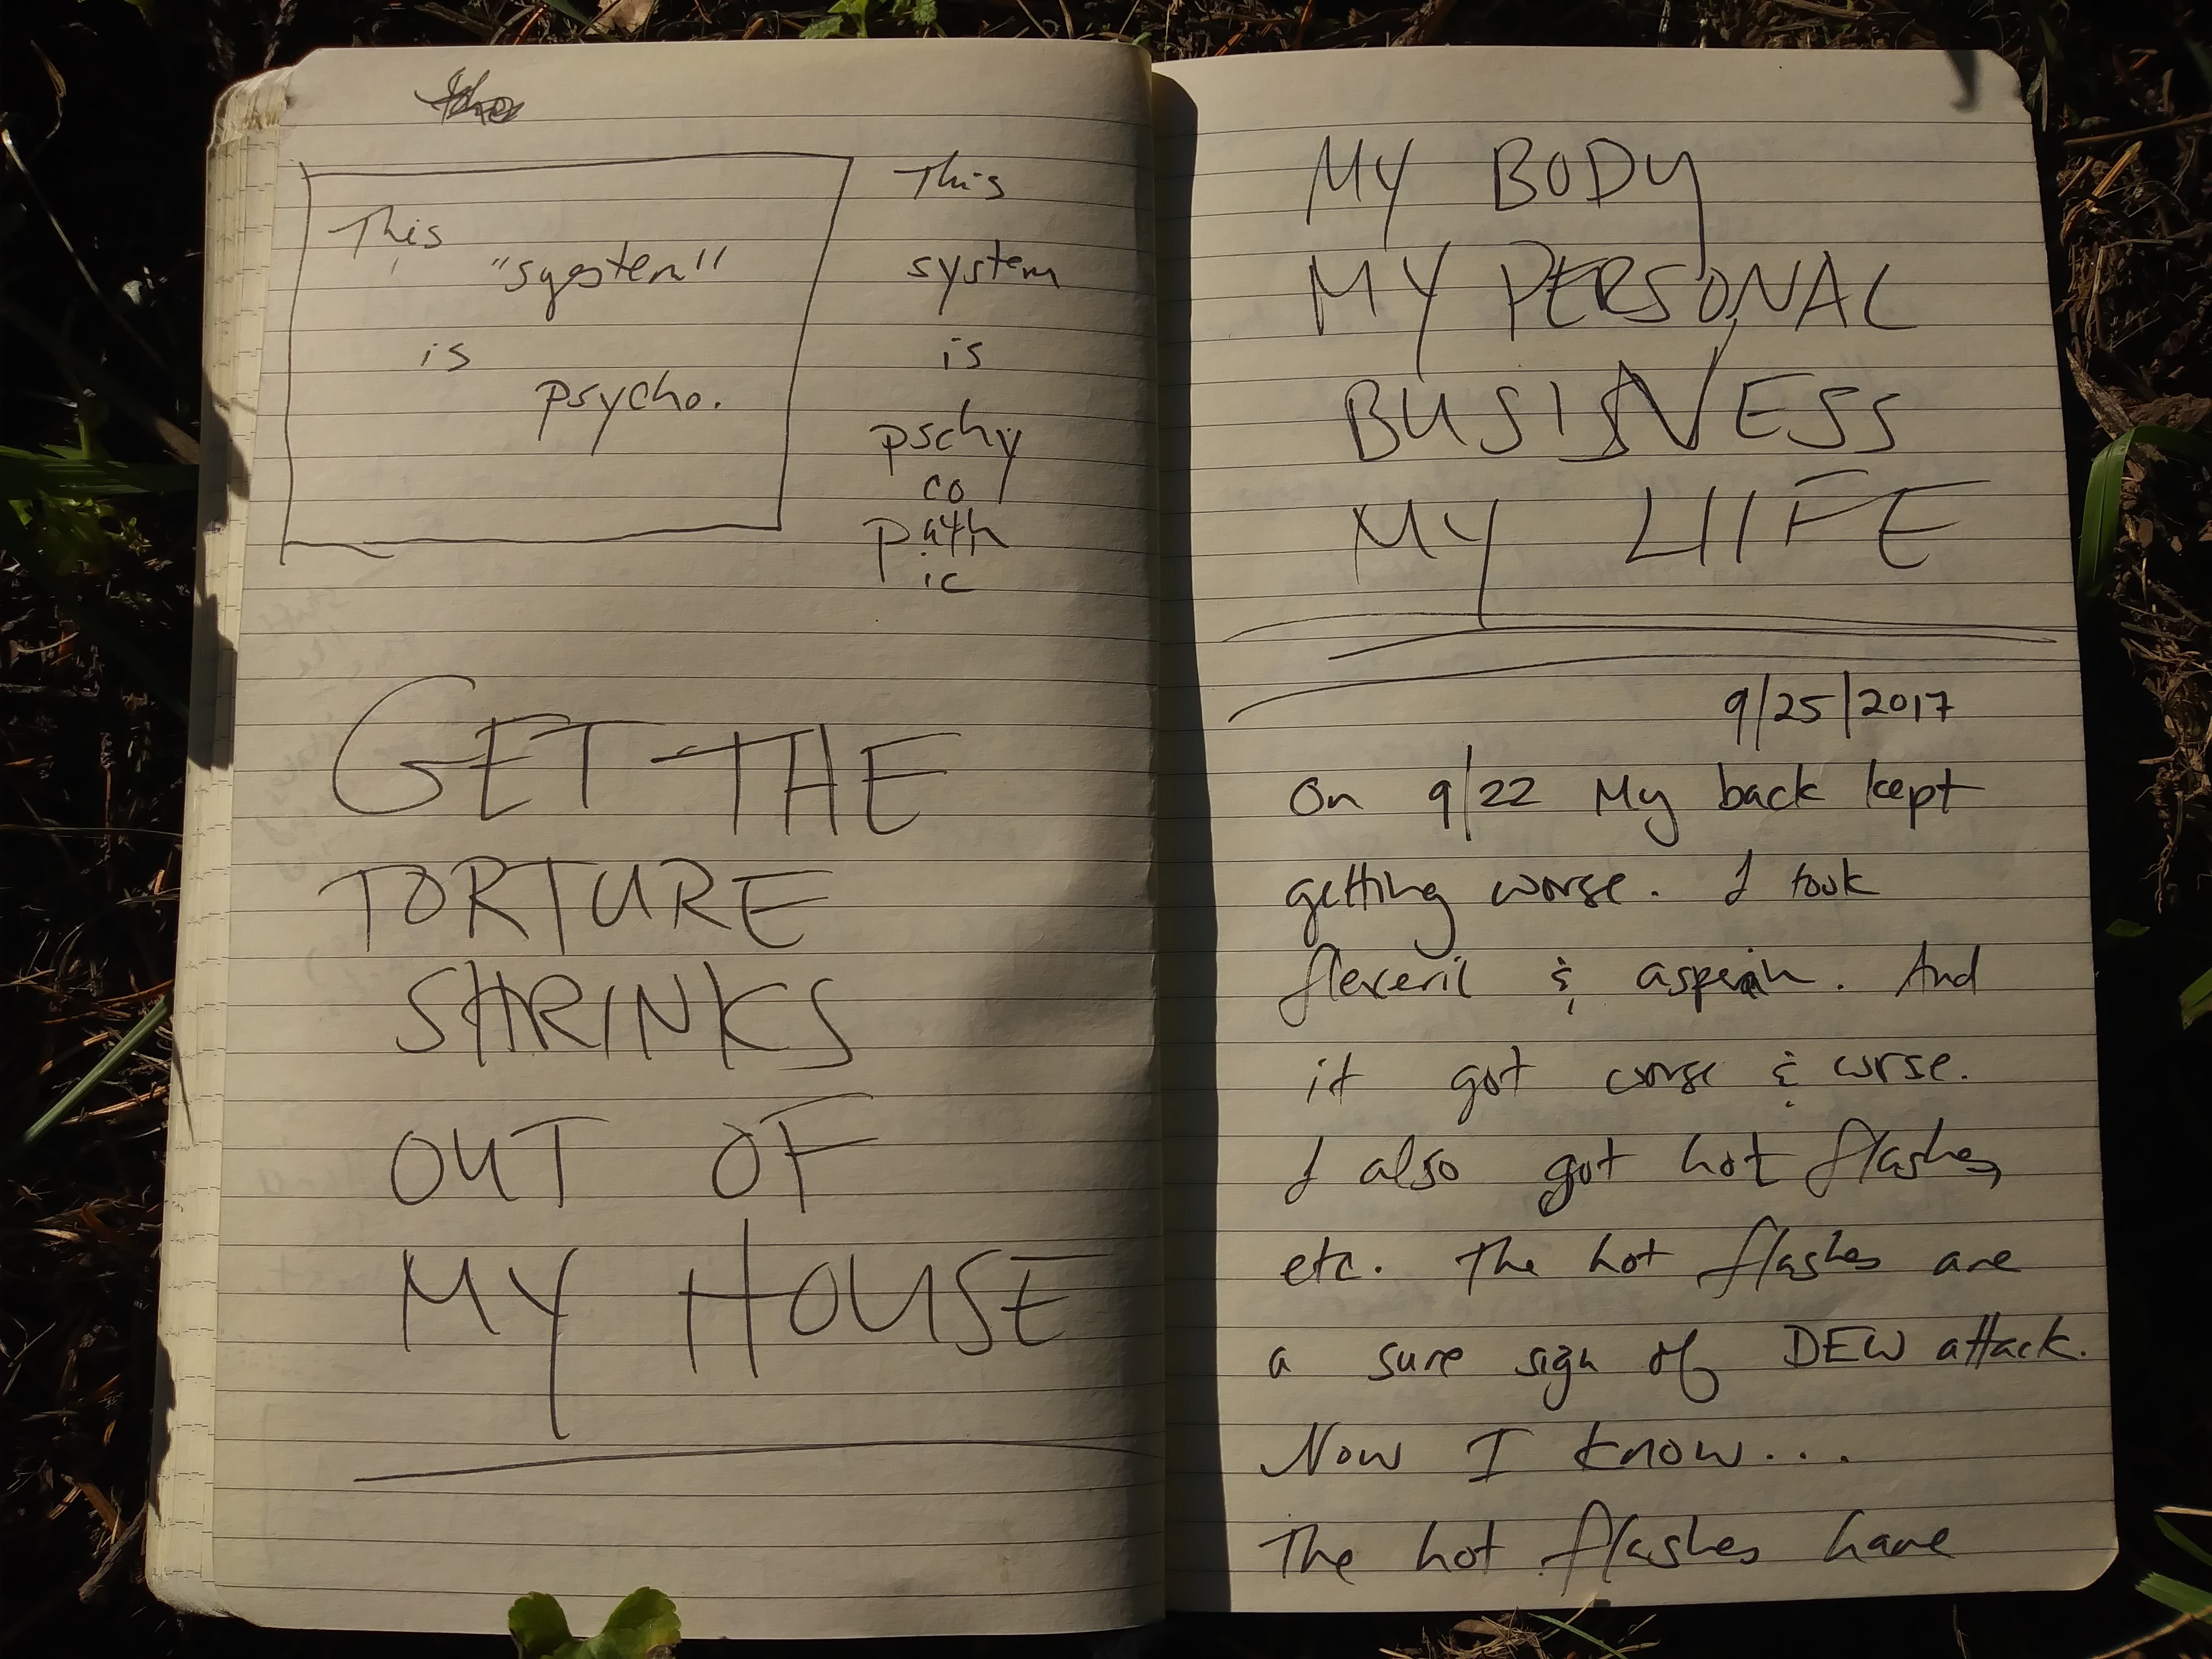 This
"system"
is
psycho.
This
system
is
pschy
co
path
ic
GET THE
TORTURE
SHRINKS
OUT OF
MY HOUSE
MY BODY
MY PERSONAL
BUSINESS
MY LIIFE
9/25/2017
On 9/22 My back kept
getting worse. I took
flexeril & asperin. And
it got worse & worse.
I also got hot flashes,
etc. The hot flashes are
a sure sign of DEW attack.
Now I know...
The hot flashes have